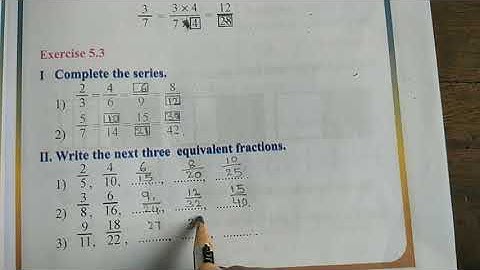 3/7 = 3 × 4 / 7 × 4 = 12/28
Exercise 5.3
I Complete the series.
1) 2/3 = 4/6 = 6/9 = 8/12
2) 5/7 = 10/14 = 15/21 = 42
II. Write the next three equivalent fractions.
1) 2/5, 4/10, 6/15, 8/20, 10/25
2) 3/8, 6/16, 9/24, 12/32, 15/40
3) 9/11, 18/22, 27